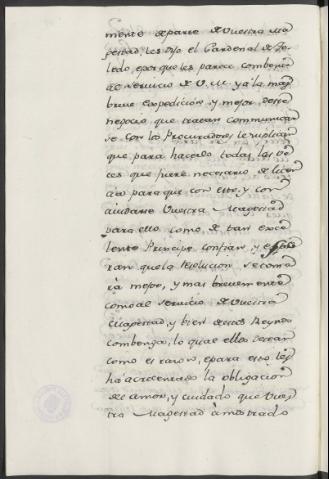 mente departe de Vuestra Ma
gestad, les dijo el Cardenal de To
ledo, e porque les parece combenir
al servicio de V. M. y á la mas
breve expedicion, y mejor deste
negocio que tratan communicar
se con los Procuradores le suplican
que para hacerlo todas las ve
ces que fuere necesario de licen
cia para que con esto, y con
aiudarse Vuestra Magestad
para ello como de tan exce
lente Principe confian, y espe
ran que la resolucion se toma
ra mejor, y mas brevemente
como al servicio de Vuestra
Magestad, y bien destos Reynos
combenga; lo qual ellos desean
como es razon, e para esto les
ha acrecentado la obligacion
de amor, y cuidado que Vues
tra Magestad à mostrado